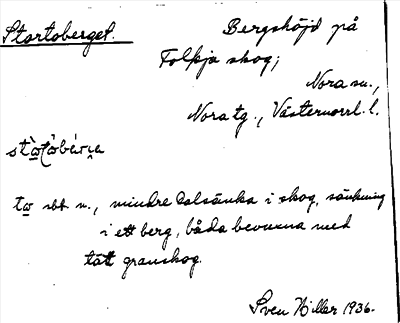 Startoberget. Bergshöjd på
Folkja skog;
Nora sn.,
Nora tg., Västernorrl. l.
tω sbt n., mindre dalsänka i skog, sänkning
i ett berg, båda bevuxna med
tät granskog.
Sven Hiller 1936.